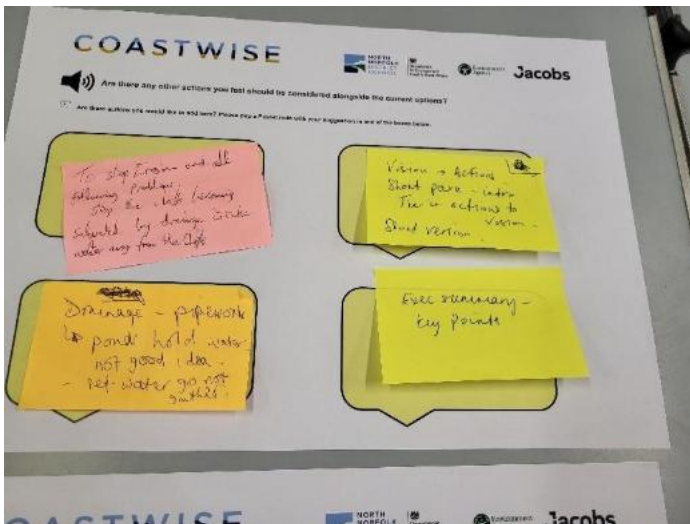 COASTWISE
NORTH
NORFOLK
DISTRICT
COUNCIL
Environment
Agency
Jacobs
Are there any other actions you feel should be considered alongside the current options?
Are there actions you would like to add here? Please pop a Post-it note with your suggestion in one of the boxes below.
To stop Erosion and all
following problems,
stop the cliffs becoming
saturated by drainage to take
water away from the cliffs
Vision → Actions
Short para - intro
Tie in actions to
vision.
Short version.
Drainage - pipework
↳ pond hold water
not good idea -
- ref water go not
gather.
Exec summary -
key points
COASTWISE
NORTH
NORFOLK
Environment
Jacobs